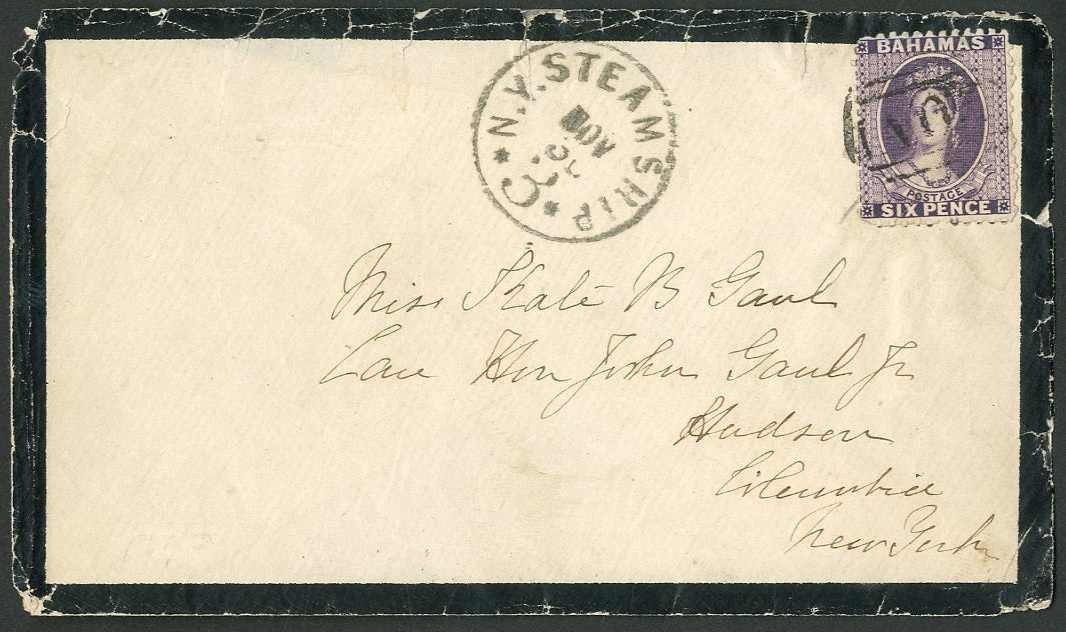 BAHAMAS
POSTAGE
SIX PENCE
N.Y. STEAMSHIP
NOV
Miss Kate B Gaul
Care Hon John Gaul Jr
Hudson
Columbia
New York